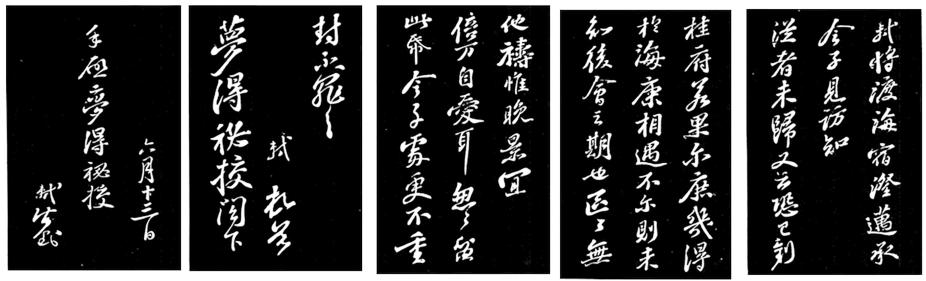 軾將渡海宿澄邁承
令子見訪知
從者未歸又云恐已到
桂府若果尔庶幾得
於海康相遇不尔則未
知後會之期也區々無
他禱惟晚景宜
倍万自愛耳忽々留
此帋令子處更不重
封不罪々
軾 頓首
夢得祕校閣下
六月十三日
手啟夢得祕校
軾 封